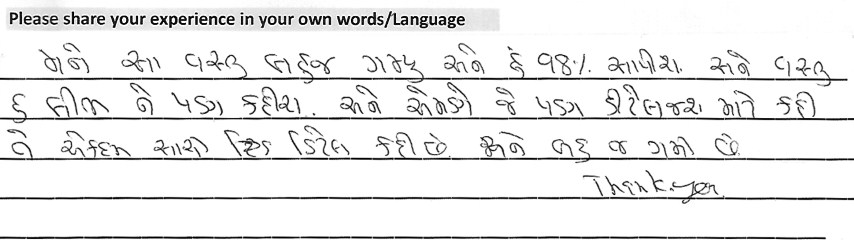 Please share your experience in your own words/Language
મને આ વસ્તુ બહુજ ગમ્યુ અને હું 98%. આપીશ. અને વસ્તુ
હુ બીજા ને પણ કહીશ. અને એમણે જે પણ ડીટેલજશ માટે કહી
તે એકદમ સારી ડિટેલ કહી છે અને બહુ જ ગમી છે.
Thank you